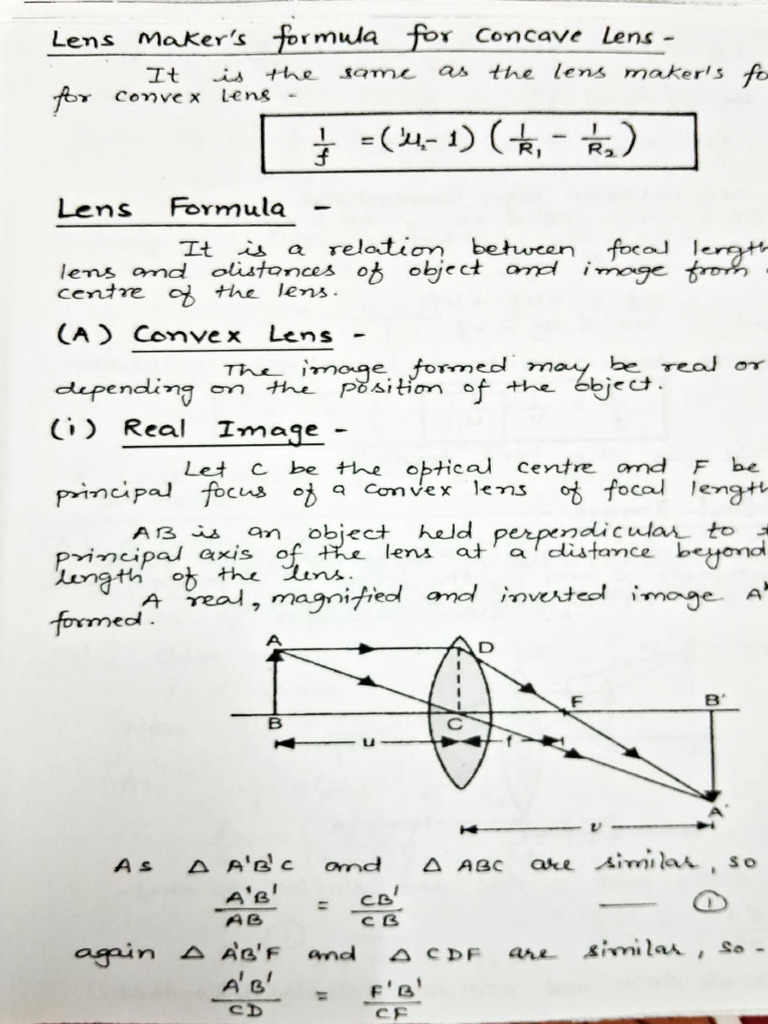 Lens Maker's formula for Concave Lens -
It is the same as the lens maker's
for convex lens -
1/f = (μ - 1) (1/R₁ - 1/R₂)
Lens Formula -
It is a relation between focal length
lens and distances of object and image from
centre of the lens.
(A) Convex Lens -
The image formed may be real or
depending on the position of the object.
(i) Real Image -
Let C be the optical centre and F be
principal focus of a convex lens of focal length
AB is an object held perpendicular to
principal axis of the lens at a distance beyond
length of the lens.
A real, magnified and inverted image
formed.
A D
F B'
B C
u f
A'
v
As △ A'B'C and △ ABC are similar, so
A'B'/AB = CB'/CB — ①
again △ A'B'F and △ CDF are similar, so -
A'B'/CD = F'B'/CF